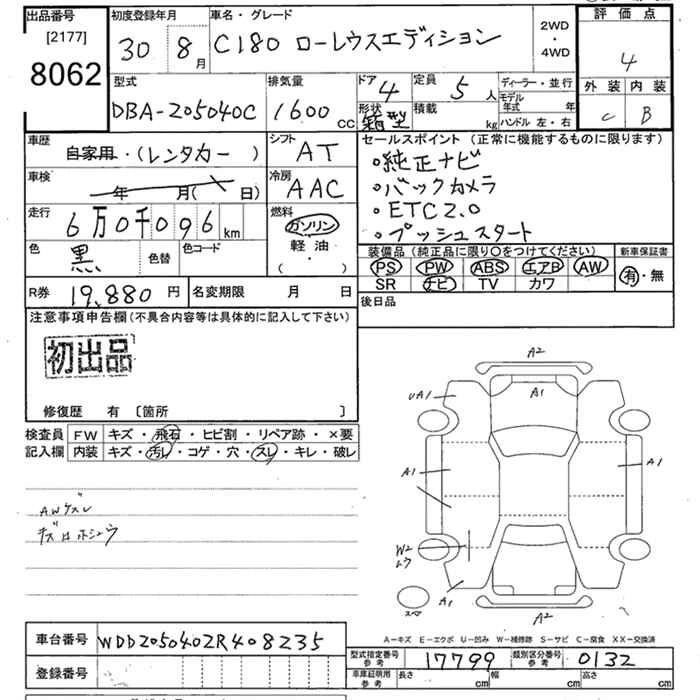 出品番号
[2177]
8062
初度登録年月
30 8月
車名・グレード
C180 ローレウスエディション
2WD
・
4WD
評価点
4
外装 内装
C B
型式
DBA-205040C
排気量
1600 cc
ドア 4
形状 箱型
定員 5 人
積載 kg
ディーラー・並行
モデル年式 年
ハンドル 左・右
車歴
自家用・(レンタカー)
シフト
AT
車検
年 月( 日)
冷房
AAC
走行
6万0千096km
燃料
ガソリン
軽油・
( )
色
黒
色替
色コード
R券 19,880 円
名変期限 月 日
セールスポイント (正常に機能するものに限ります)
○純正ナビ
○バックカメラ
○ETC2.0
○プッシュスタート
装備品 (純正品に限り〇をつけてください)
PS PW ABS エアB AW
SR ナビ TV カワ
新車保証書
有・無
後日品
注意事項申告欄(不具合内容等は具体的に記入して下さい)
初出品
修復歴 有 〔箇所 〕
検査員記入欄
FW キズ・飛石・ヒビ割・リペア跡・×要
内装 キズ・汚レ・コゲ・穴・スレ・キレ・破レ
AWゲスレ
キズ大ホシュウ
A2
A1
UA1
A1
A1
W2
ムク
A1
スペア
A2
A-キズ E-エクボ U-凹み W-補修跡 S-サビ C-腐食 XX-交換済
車台番号 WDD2050402R408235
登録番号
型式指定番号 参考 17799
類別区分番号 参考 0132
車庫証明用 参考 長さ cm 幅 cm 高さ cm